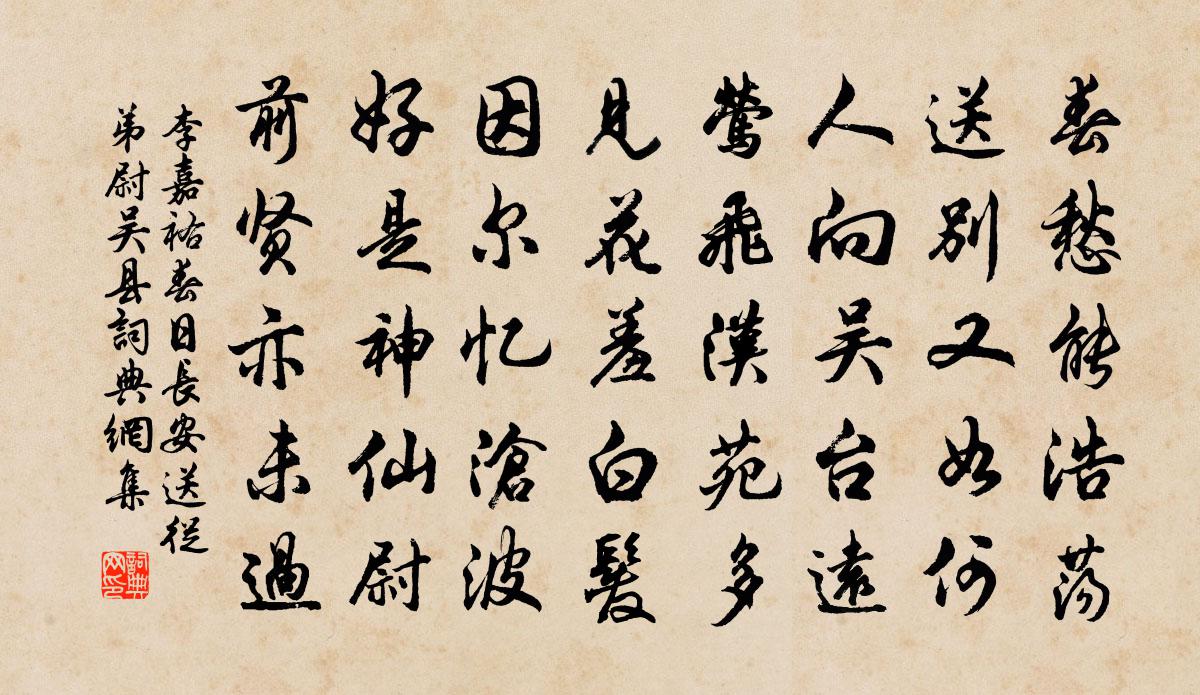 春愁能浩荡
送别又如何
人向吴台远
莺飞漢苑多
见花羞白髮
因尔忆滄波
好是神仙尉
前贤亦未過
李嘉祐春日長安送從
弟尉吴县詞典網集
詞典
网印